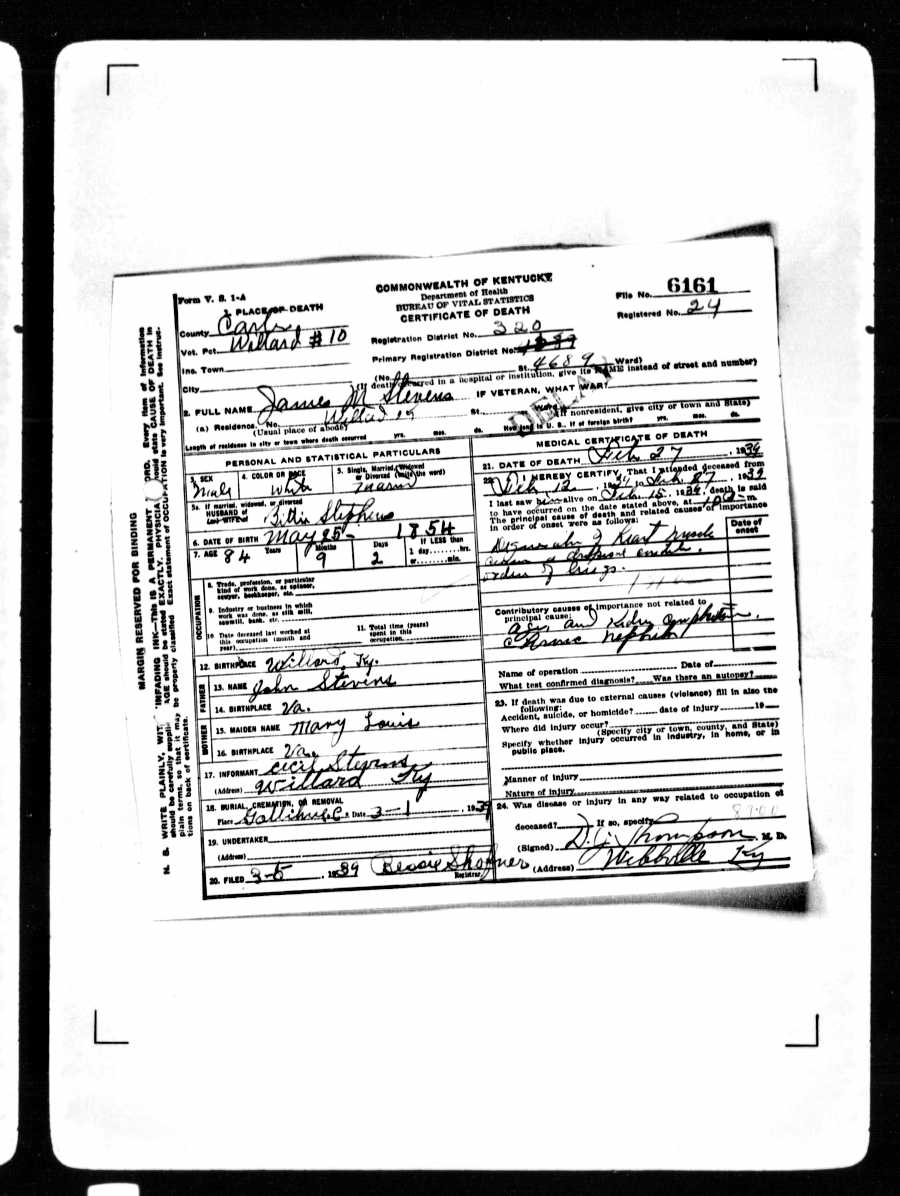 Form V. S. 1-A
COMMONWEALTH OF KENTUCKY
Department of Health
BUREAU OF VITAL STATISTICS
CERTIFICATE OF DEATH
File No. 6161
Registered No. 24
1. PLACE OF DEATH
County Carter
Vot. Pct. Willard #10
Inc. Town
City
Registration District No. 320
Primary Registration District No.
4689
(No. St. Ward)
(If death occurred in a hospital or institution, give its NAME instead of street and number)
2. FULL NAME James M Stevens
IF VETERAN, WHAT WAR?
DELAY
(a) Residence. No. Willard St. Ward
(Usual place of abode) (If nonresident, give city or town and State)
Length of residence in city or town where death occurred yrs. mos. ds. How long in U. S., if of foreign birth? yrs. mos. ds.
PERSONAL AND STATISTICAL PARTICULARS
3. SEX Male
4. COLOR OR RACE White
5. Single, Married, Widowed or Divorced (write the word)
5a. If married, widowed, or divorced
HUSBAND of
(or) WIFE of Stephens
6. DATE OF BIRTH May 25 - 1854
7. AGE 84 Years 9 Months 2 Days If LESS than 1 day hrs. or min.
OCCUPATION
8. Trade, profession, or particular kind of work done, as spinner, sawyer, bookkeeper, etc.
9. Industry or business in which work was done, as silk mill, sawmill, bank, etc.
10. Date deceased last worked at this occupation (month and year)
11. Total time (years) spent in this occupation
12. BIRTHPLACE Willard, Ky.
FATHER
13. NAME John Stevens
14. BIRTHPLACE Va.
MOTHER
15. MAIDEN NAME Mary Louis
16. BIRTHPLACE Va.
17. INFORMANT Cecil Stevens
(Address) Willard Ky
18. BURIAL, CREMATION, OR REMOVAL
Place Date 3-1, 1939
19. UNDERTAKER
(Address)
20. FILED 3-5, 1939 Bessie Shaffner
Registrar.
MEDICAL CERTIFICATE OF DEATH
21. DATE OF DEATH Feb. 27, 1939
22. I HEREBY CERTIFY, That I attended deceased from
Feb 12, 1939 to Feb 27, 1939
I last saw him alive on Feb 15, 1939, death is said
to have occurred on the date stated above, at m.
The principal cause of death and related causes of importance
in order of onset were as follows:
Date of onset
of heart muscle
of lungs.
Contributory causes of importance not related to
principal cause:
and Kidney
Chronic nephritis
Name of operation Date of
What test confirmed diagnosis? Was there an autopsy?
23. If death was due to external causes (violence) fill in also the
following:
Accident, suicide, or homicide? date of injury 19
Where did injury occur?
(Specify city or town, county, and State)
Specify whether injury occurred in industry, in home, or in
public place.
Manner of injury
Nature of injury
24. Was disease or injury in any way related to occupation of
deceased? If so, specify
(Signed) D. J. Thompson M. D.
(Address) Webbville Ky
MARGIN RESERVED FOR BINDING